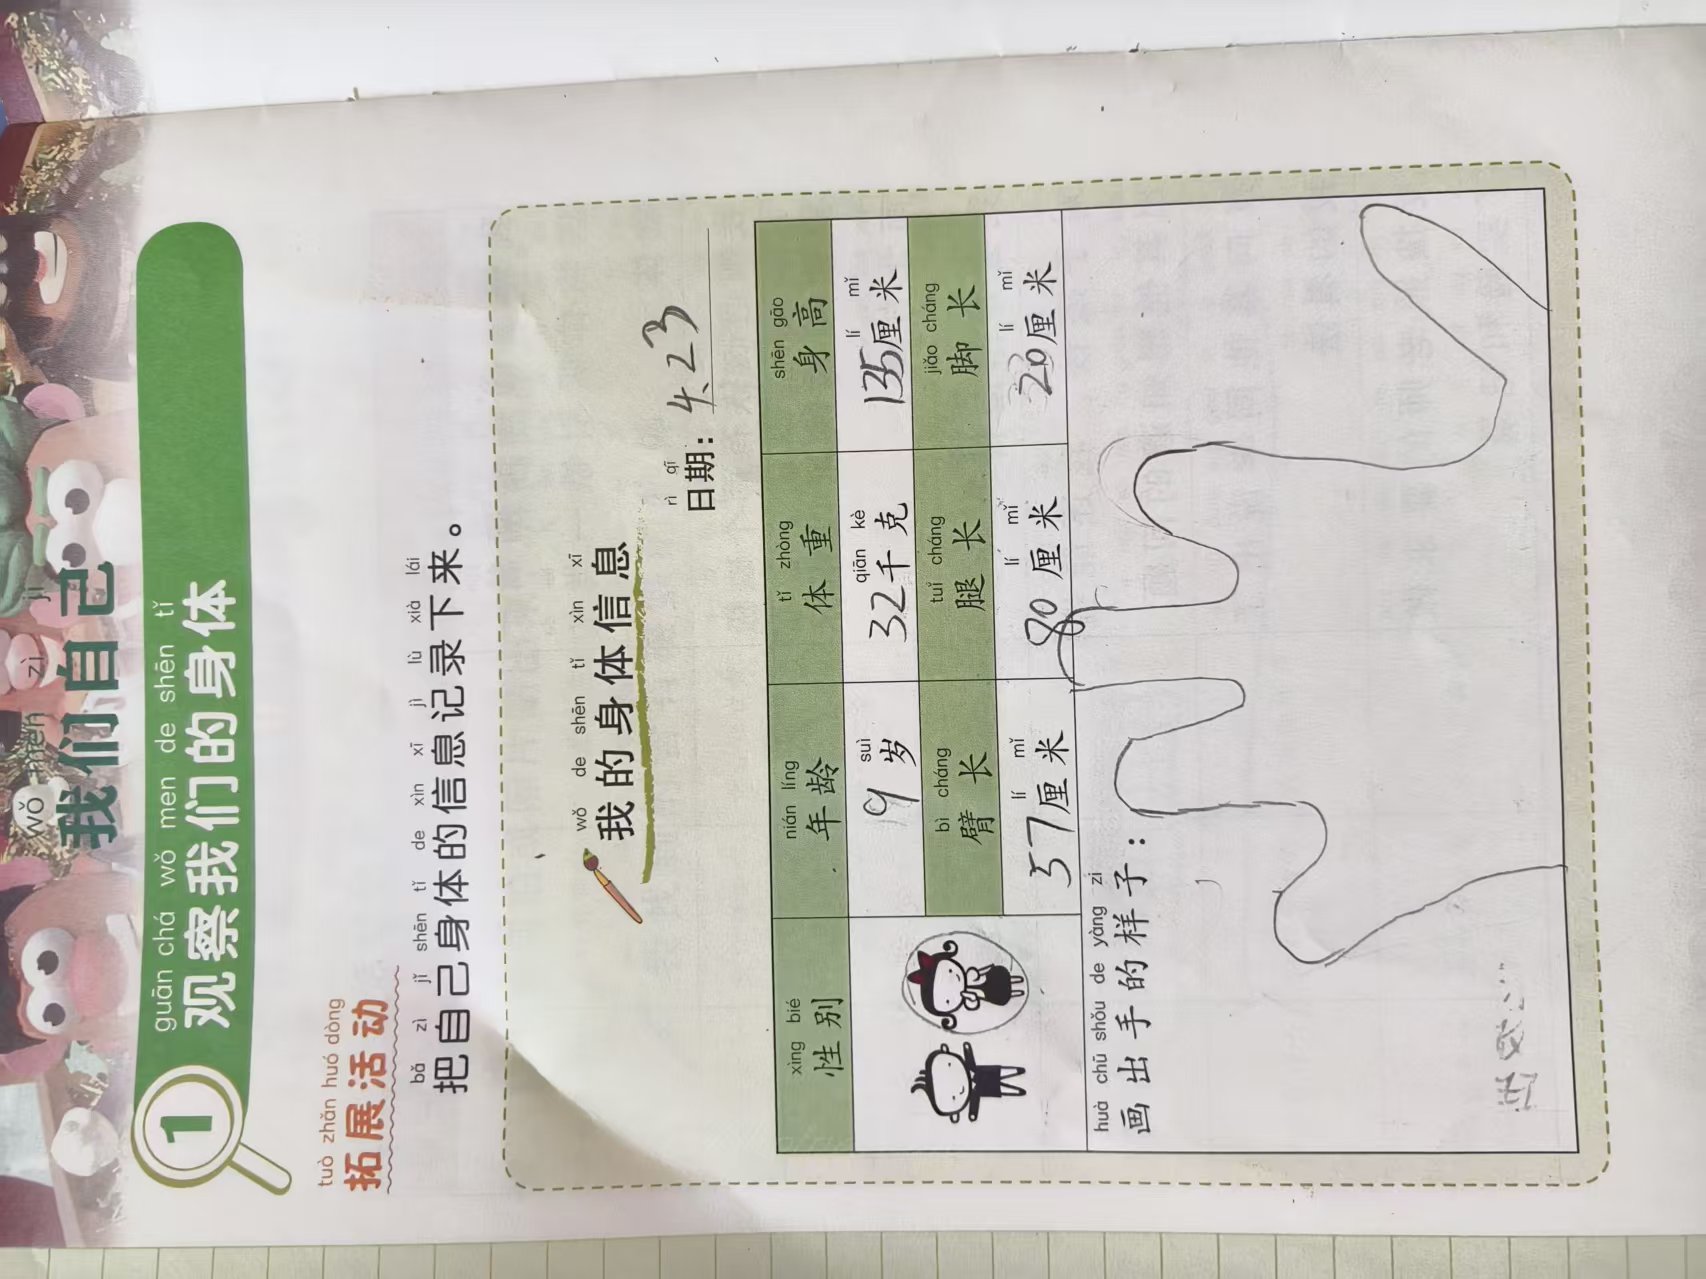 wǒ men zì jǐ
我们自己
1
guān chá wǒ men de shēn tǐ
观察我们的身体
tuò zhǎn huó dòng
拓展活动
bǎ zì jǐ shēn tǐ de xìn xī jì lù xià lái
把自己身体的信息记录下来。
wǒ de shēn tǐ xìn xī
我的身体信息
rì qī
日期：4.23
xìng bié nián líng tǐ zhòng shēn gāo
性别 年龄 体重 身高
suì qiān kè lí mǐ
9岁 32千克 135厘米
bì cháng tuǐ cháng jiǎo cháng
臂长 腿长 脚长
lí mǐ lí mǐ lí mǐ
57厘米 80厘米 20厘米
huà chū shǒu de yàng zi
画出手的样子：